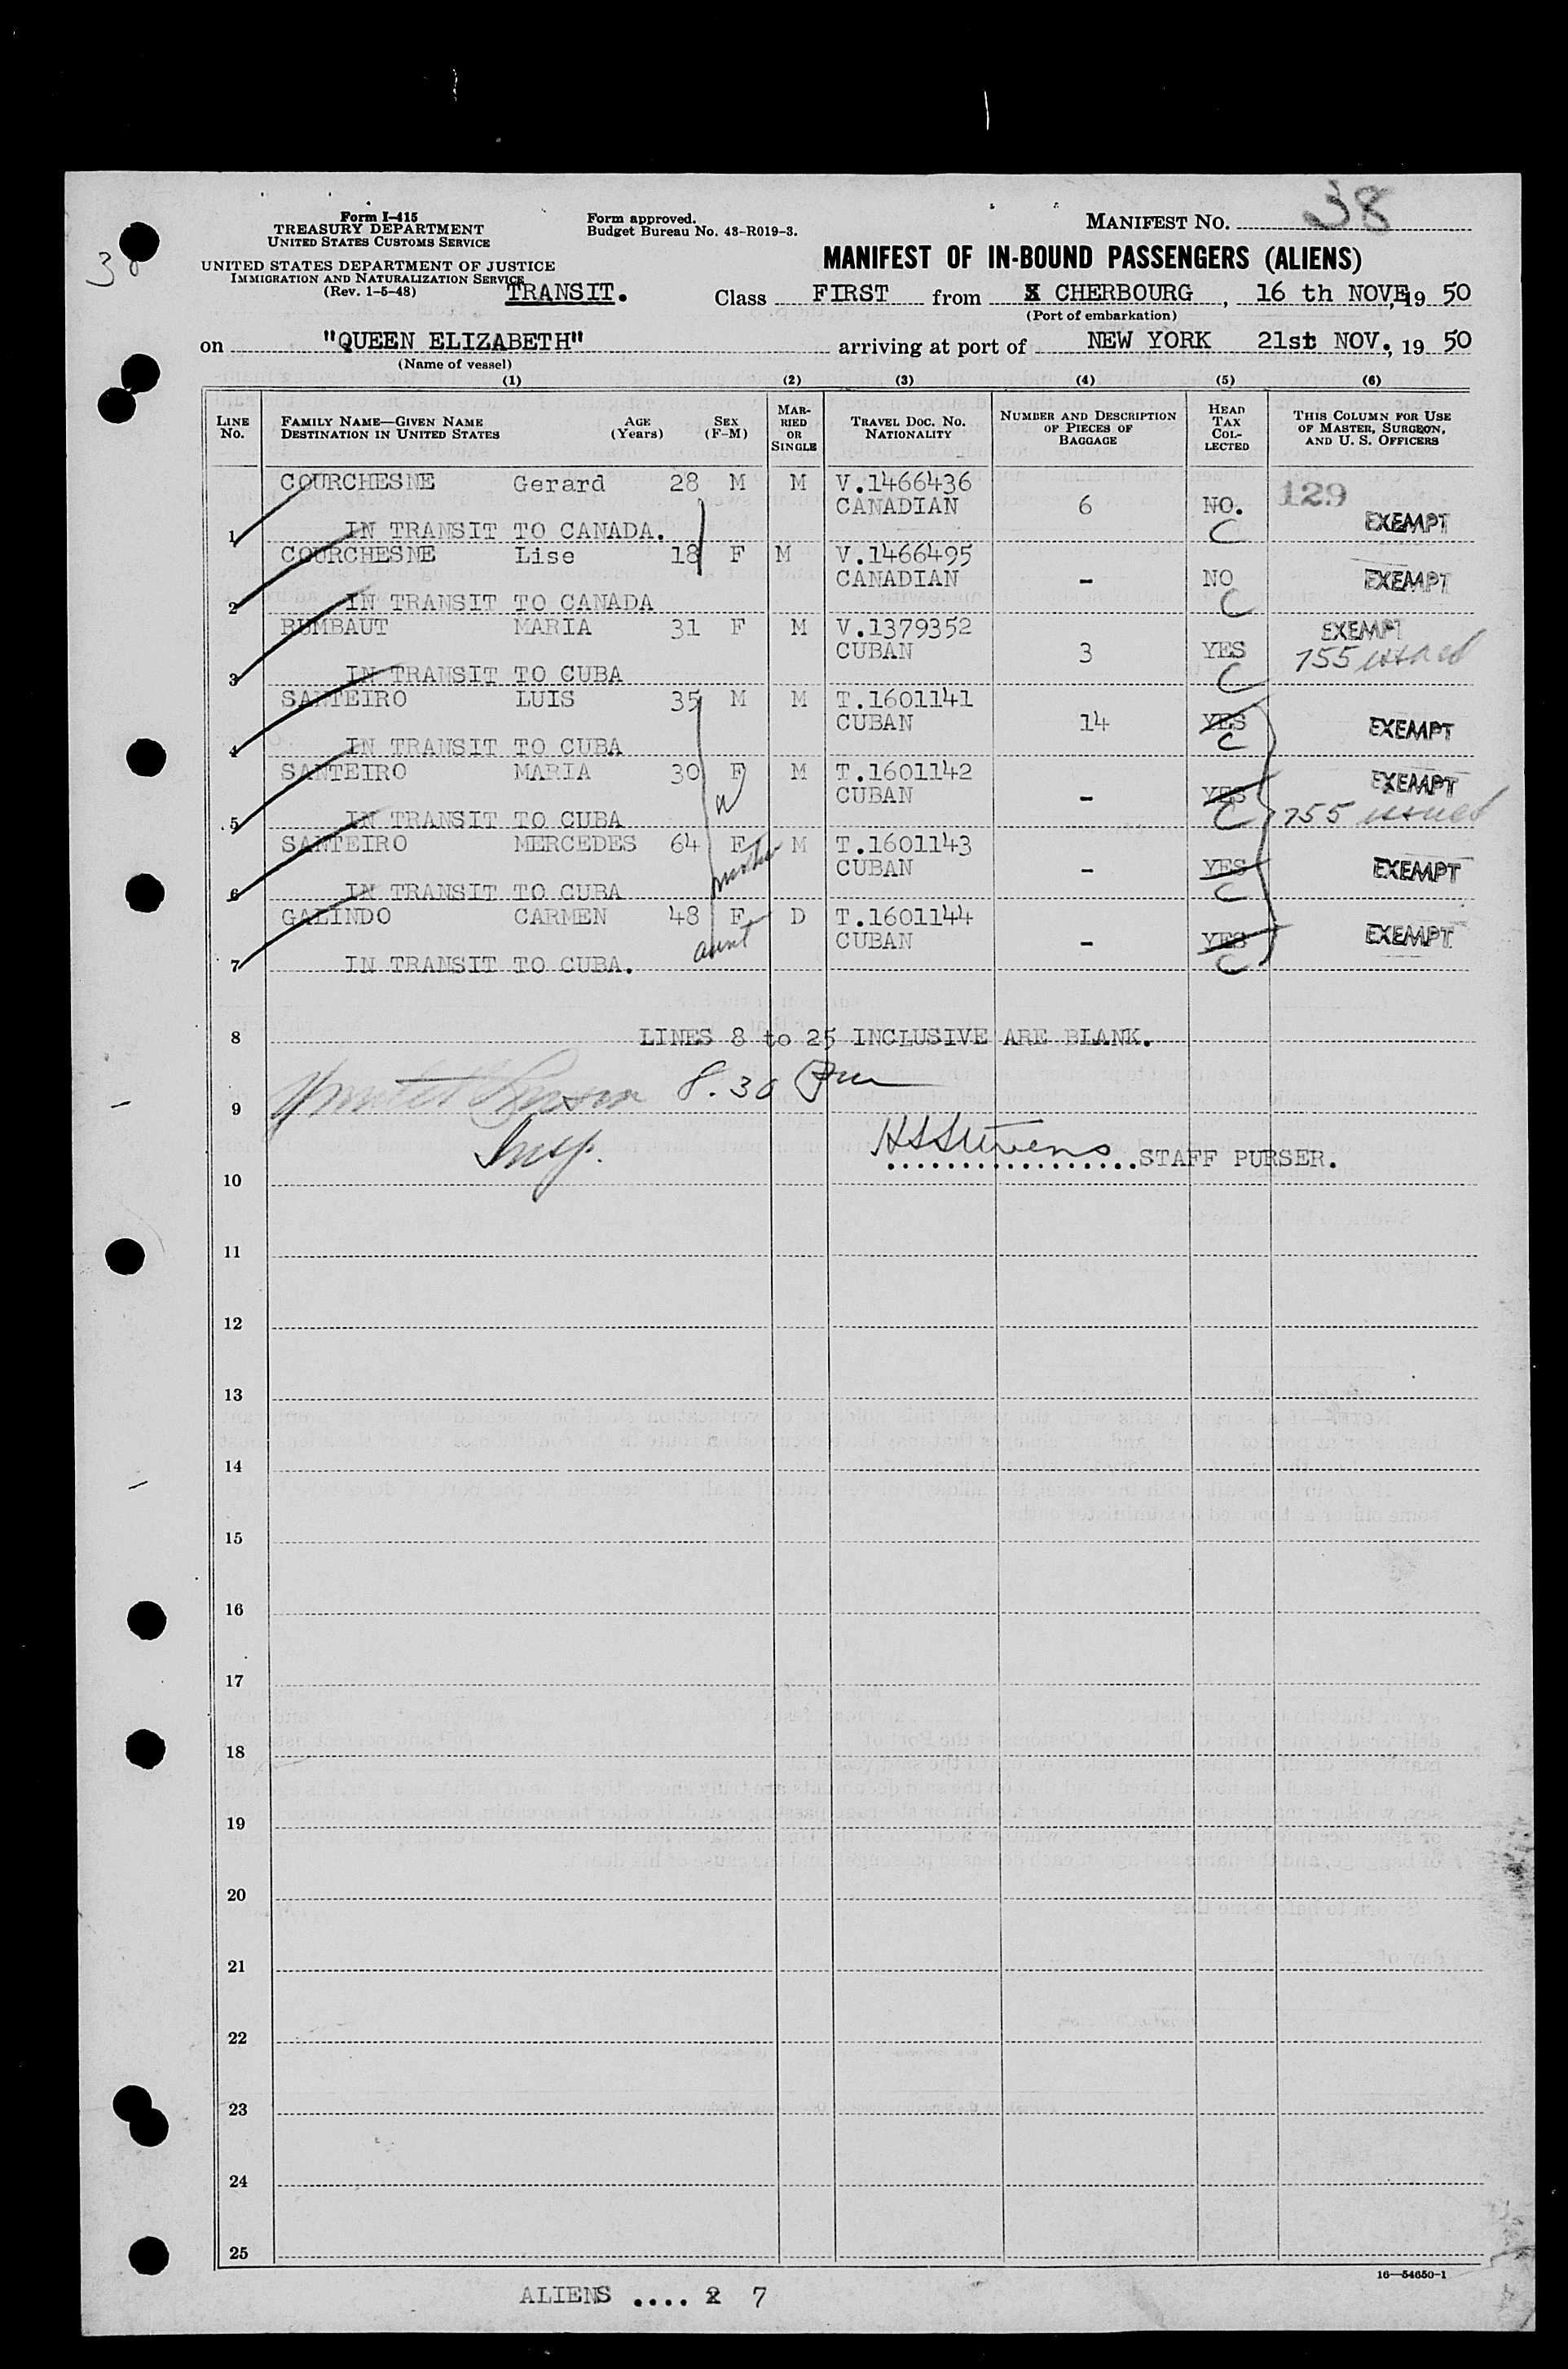 38
Form I-415
TREASURY DEPARTMENT
UNITED STATES CUSTOMS SERVICE
Form approved.
Budget Bureau No. 43-R019-3.
MANIFEST NO. 38
UNITED STATES DEPARTMENT OF JUSTICE
IMMIGRATION AND NATURALIZATION SERVICE
(Rev. 1-5-48)
MANIFEST OF IN-BOUND PASSENGERS (ALIENS)
TRANSIT. Class FIRST from X CHERBOURG, 16 th NOVE, 19 50
(Port of embarkation)
on "QUEEN ELIZABETH" arriving at port of NEW YORK 21st NOV., 19 50
(Name of vessel)
(1) (2) (3) (4) (5) (6)
LINE No. FAMILY NAME—GIVEN NAME DESTINATION IN UNITED STATES AGE (Years) SEX (F-M) MARRIED OR SINGLE TRAVEL DOC. NO. NATIONALITY NUMBER AND DESCRIPTION OF PIECES OF BAGGAGE HEAD TAX COLLECTED THIS COLUMN FOR USE OF MASTER, SURGEON, AND U. S. OFFICERS
COURCHESNE Gerard 28 M M V.1466436 129
CANADIAN 6 NO. EXEMPT
1 IN TRANSIT TO CANADA. C
COURCHESNE Lise 18 F M V.1466495
CANADIAN - NO EXEMPT
2 IN TRANSIT TO CANADA C
RUMBAUT MARIA 31 F M V.1379352 EXEMPT
CUBAN 3 YES 755 issued
3 IN TRANSIT TO CUBA C
SANTEIRO LUIS 35 M M T.1601141
CUBAN 14 YES EXEMPT
4 IN TRANSIT TO CUBA C
SANTEIRO MARIA 30 F M T.1601142 EXEMPT
w CUBAN - YES
5 IN TRANSIT TO CUBA C 755 issued
SANTEIRO MERCEDES 64 F M T.1601143
mother CUBAN - YES EXEMPT
6 IN TRANSIT TO CUBA C
GALINDO CARMEN 48 F D T.1601144
aunt CUBAN - YES EXEMPT
7 IN TRANSIT TO CUBA. C
8 LINES 8 to 25 INCLUSIVE ARE BLANK.
8.30 Pm
9
Insp. HSStevens STAFF PURSER.
10
11
12
13
14
15
16
17
18
19
20
21
22
23
24
25
16—54650-1
ALIENS .... 2 7